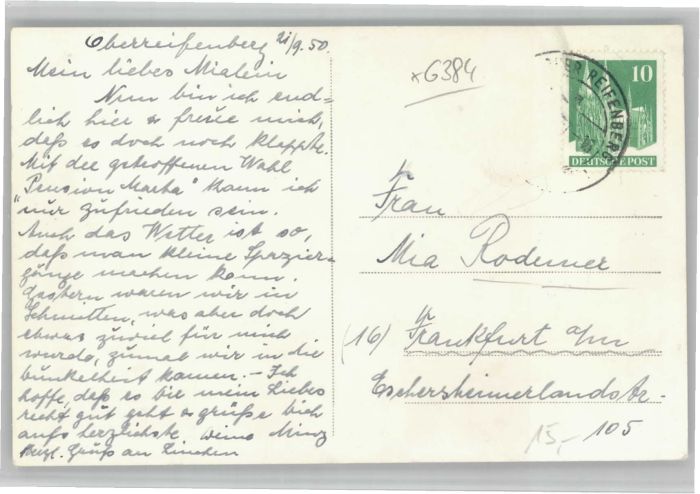 Oberreifenberg 21/9.50.
Mein liebes Mialein
Nun bin ich end=
lich hier & freue mich,
daß es doch noch klappte.
Mit der getroffenen Wahl
"Pension Martha" kann ich
nur zufrieden sein.
Auch das Wetter ist so,
daß man kleine Spazier=
gänge machen kann.
Gestern waren wir in
Schmitten, was aber doch
etwas zuviel für mich
wurde, zumal wir in die
Dunkelheit kamen. - Ich
hoffe, daß es Dir mein Liebes
recht gut geht & grüße Dich
aufs herzlichste
Herzl. Gruß an Linchen
*G384
10
DEUTSCHE POST
REIFENBERG
Frau
Mia Rodemer
(16) Frankfurt a/m
Eschersheimerlandstr.
105
15,-